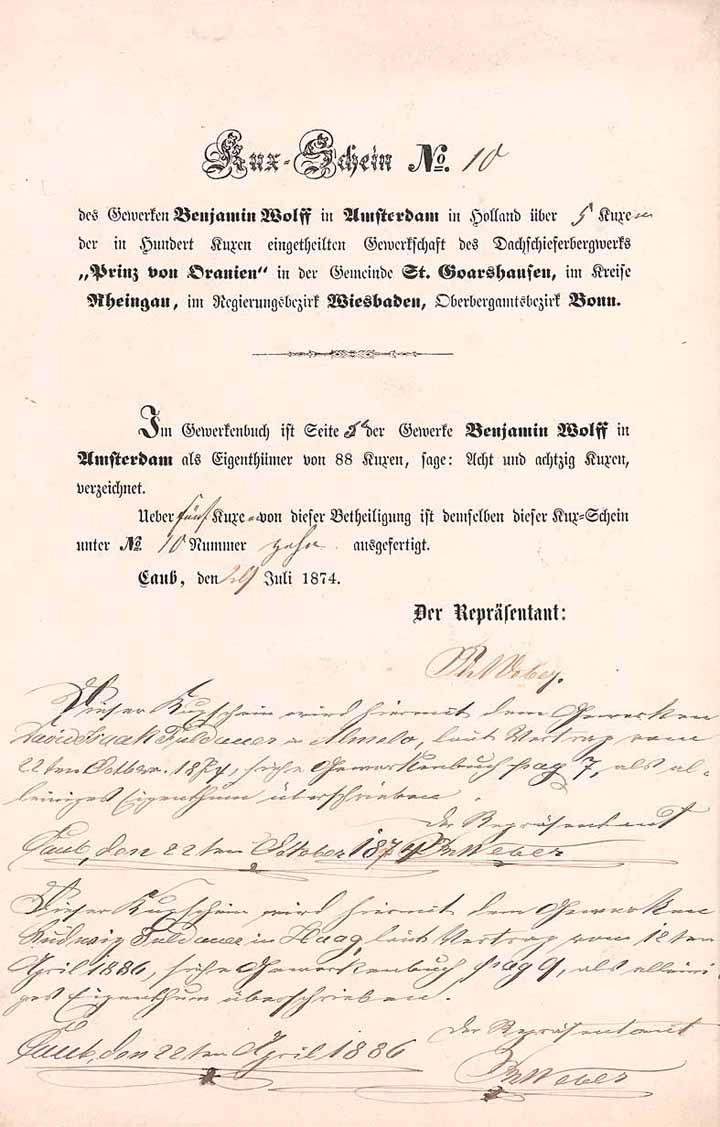 Kux-Schein No. 10
des Gewerken Benjamin Wolff in Amsterdam in Holland über 5 Kuxe
der in Hundert Kuxen eingetheilten Gewerkschaft des Dachschieferbergwerks
„Prinz von Oranien“ in der Gemeinde St. Goarshausen, im Kreise
Rheingau, im Regierungsbezirk Wiesbaden, Oberbergamtsbezirk Bonn.
Im Gewerkenbuch ist Seite der Gewerke Benjamin Wolff in
Amsterdam als Eigenthümer von 88 Kuxen, sage: Acht und achtzig Kuxen,
verzeichnet.
Ueber fünf Kuxe von dieser Betheiligung ist demselben dieser Kux-Schein
unter No. 10 Nummer zehn ausgefertigt.
Caub, den 29 Juli 1874.
Der Repräsentant:
Ph Weber.
Dieser Kuxschein wird hiermit dem Gewerken
David Isaak Fuldauer in Almelo, laut Vertrag vom
22ten October 1874, siehe Gewerkenbuch pag 7, als al-
leiniges Eigenthum überschrieben.
Der Repräsentant
Caub, den 22ten October 1874 Ph Weber
Dieser Kuxschein wird hiermit dem Gewerken
Ludwig Fuldauer in Haag, laut Vertrag vom 12ten
April 1886, siehe Gewerkenbuch pag 9, als alleini-
ges Eigenthum überschrieben.
Der Repräsentant
Caub, den 22ten April 1886
Ph Weber